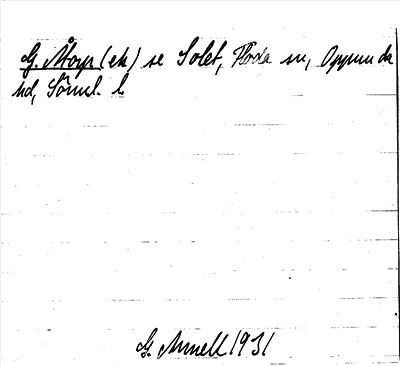 G. Åtorp (ek) se Solet, Floda sn, Oppunda
hd, Sörml. l
G. Annell 1931